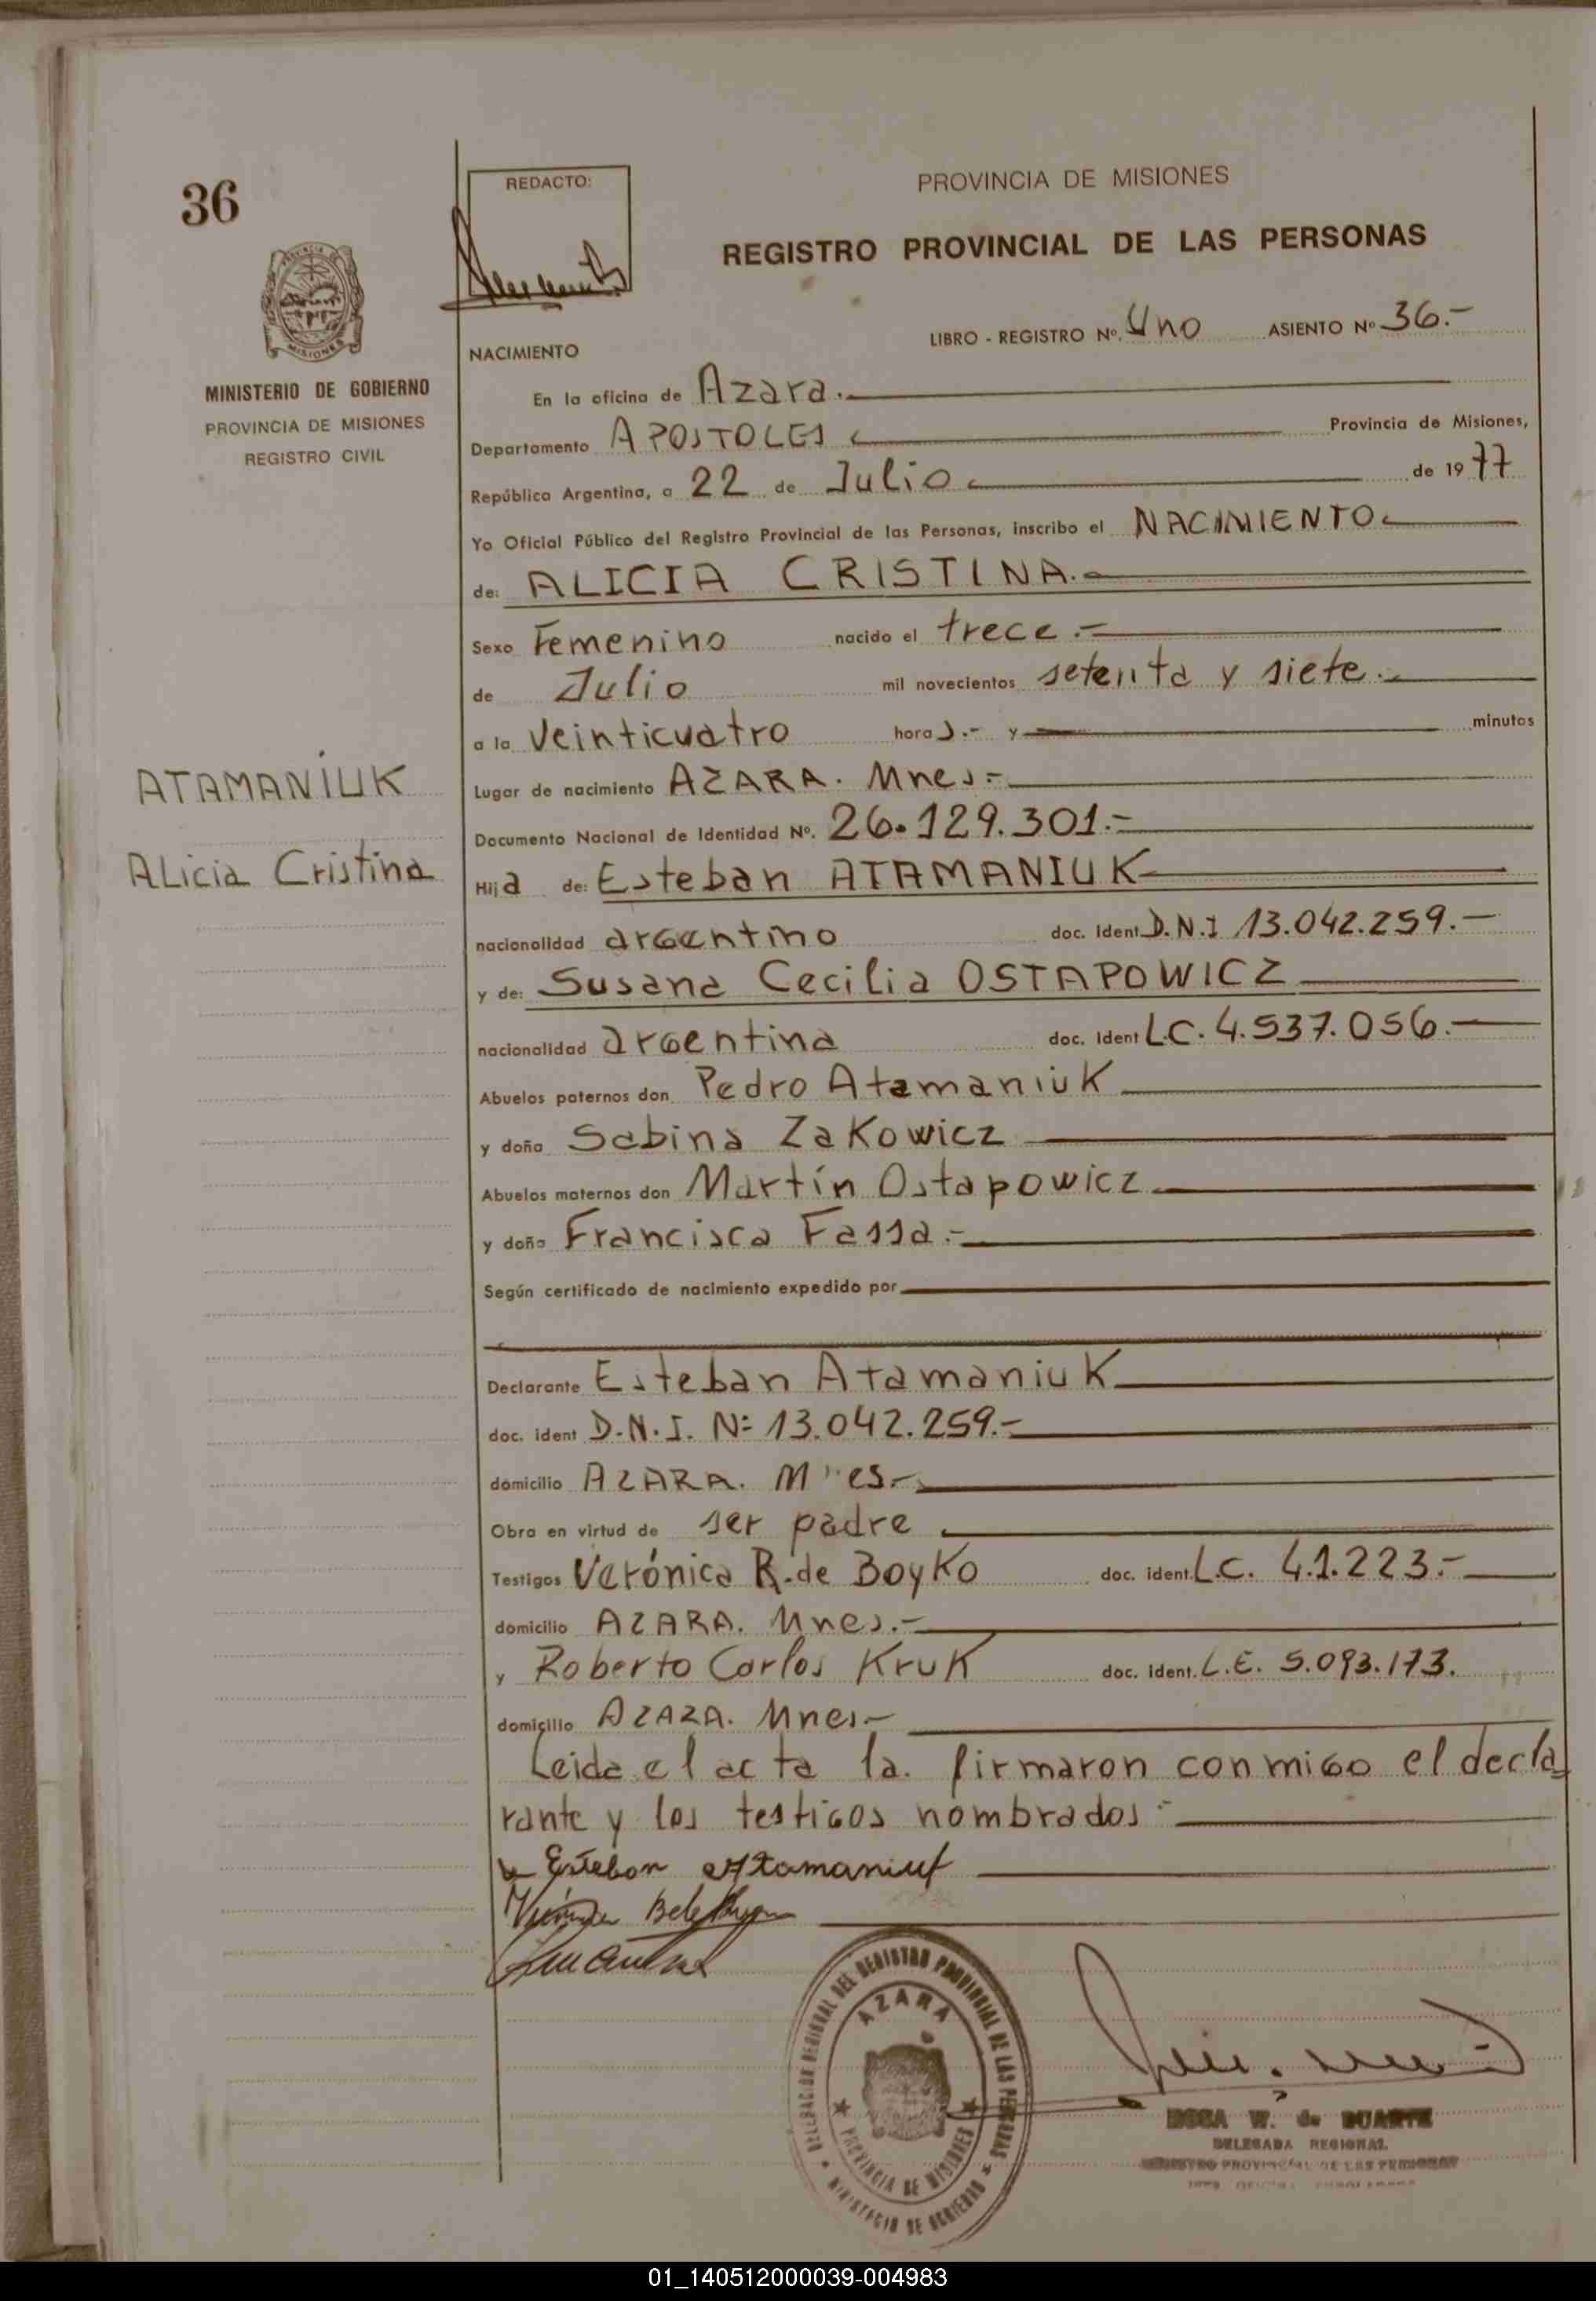 36
REDACTO:
PROVINCIA DE MISIONES
REGISTRO PROVINCIAL DE LAS PERSONAS
LIBRO - REGISTRO Nº. Uno ASIENTO Nº 36.-
MISIONES
MINISTERIO DE GOBIERNO
PROVINCIA DE MISIONES
REGISTRO CIVIL
NACIMIENTO
En la oficina de Azara.
Departamento APOSTOLES Provincia de Misiones,
República Argentina, a 22 de Julio de 1977
Yo Oficial Público del Registro Provincial de las Personas, inscribo el NACIMIENTO
de: ALICIA CRISTINA.
Sexo Femenino nacido el trece.-
de Julio mil novecientos setenta y siete.-
a la veinticuatro horas.- y minutos
ATAMANIUK
Alicia Cristina
Lugar de nacimiento AZARA. Mnes.-
Documento Nacional de Identidad Nº. 26.129.301.-
Hija de: Esteban ATAMANIUK
nacionalidad argentino doc. Ident D.N.I 13.042.259.-
y de: Susana Cecilia OSTAPOWICZ
nacionalidad argentina doc. Ident L.C. 4.537.056.-
Abuelos paternos don Pedro Atamaniuk
y doña Sabina Zakowicz
Abuelos maternos don Martín Ostapowicz
y doña Francisca Fassa.-
Según certificado de nacimiento expedido por
Declarante Esteban Atamaniuk
doc. ident D.N.I. Nº 13.042.259.-
domicilio AZARA. Mnes.-
Obra en virtud de ser padre
Testigos Verónica R. de Boyko doc. ident. L.C. 4.1.223.-
domicilio AZARA. Mnes.-
y Roberto Carlos Kruk doc. ident. L.E. 5.093.173.
domicilio AZARA. Mnes-
Leida el acta la firmaron conmigo el decla
rante y los testigos nombrados.-
Esteban Atamaniuk
DELEGACION REGIONAL DEL REGISTRO PROVINCIAL DE LAS PERSONAS
AZARA
PROVINCIA DE MISIONES
MINISTERIO DE GOBIERNO
W. de DUARTE
DELEGADA REGIONAL
REGISTRO PROVINCIAL DE LAS PERSONAS
01_140512000039-004983